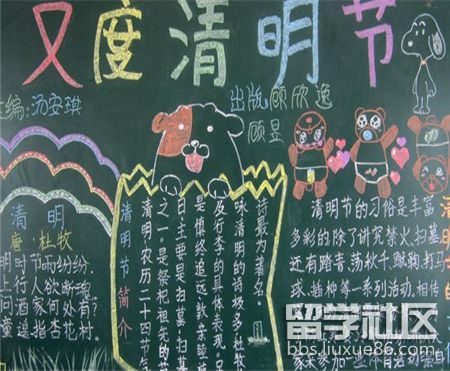 又度清明节
主编:汤安琪
出版:顾欣逸
顾昱
清明
唐·杜牧
明时节雨纷纷
上行人欲断魂
问酒家何处有?
童遥指杏花村.
清明节简介
清明,农历二十四节气
之一。是祭祀祖先的节
日,主要是扫墓,扫墓
是慎终追远、敦亲睦族
及行孝的具体表现。吕
咏清明的诗极多,杜牧
诗最为著名。
清明节的习俗是丰富
多彩的,除了讲究禁火、扫墓
还有踏青、荡秋千、蹴鞠、打马
球、插柳等一系列活动,相传
家来参加一些
留学社区
bbs.liuxue86.com